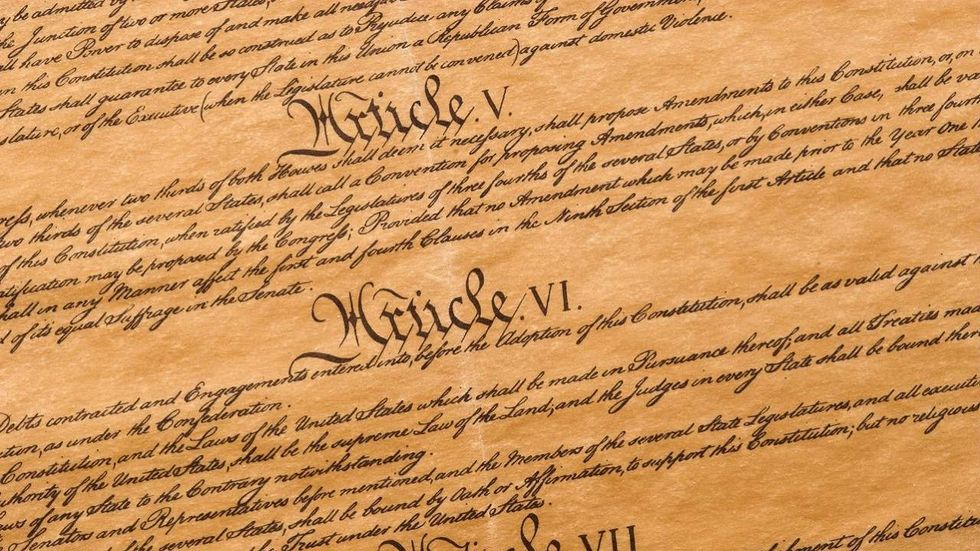 y be admitted by
he Junction of two or more States,
all have Power to dispose of and make all need
in this Constitution shall be so construed as to Prejudice any Claims of
States shall guarantee to every State in this Union a Republican Form of Government,
slature, or of the Executive (when the Legislature cannot be convened) against domestic Violence.
Article. V.
ress, whenever two thirds of both Houses shall deem it necessary, shall propose Amendments to this Constitution, or, on
two thirds of the several States, shall call a Convention for proposing Amendments, which, in either Case, shall be va
of this Constitution, when ratified by the Legislatures of three fourths of the several States, or by Conventions in three fourt
atification may be proposed by the Congress; Provided that no Amendment which may be made prior to the Year One
hall in any Manner affect the first and fourth Clauses in the Ninth Section of the first Article and that no State
d of its equal Suffrage in the Senate.
Article. VI.
Debts contracted and Engagements entered into, before the Adoption of this Constitution, shall be as valid against
ution, as under the Confederation.
Constitution, and the Laws of the United States which shall be made in Pursuance thereof; and all Treaties mad
uthority of the United States, shall be the supreme Law of the Land; and the Judges in every State shall be bound there
aws of any State to the Contrary notwithstanding.
Senators and Representatives before mentioned, and the Members of the several State Legislatures, and all execut
of the several States, shall be bound by Oath or Affirmation, to support this Constitution; but no religious
Trust under the United States.
Article. VII.
of this Consti